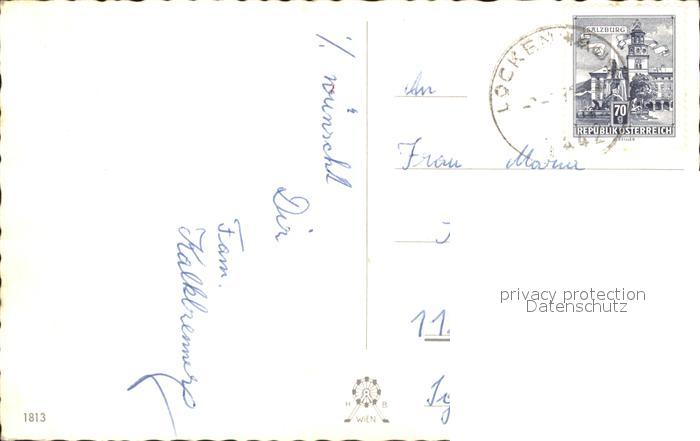 wünscht
Dir
Fam.
Kalkbrenners
An
Frau Maria
11.
SALZBURG
70
g
REPUBLIK ÖSTERREICH
privacy protection
Datenschutz
H B
WIEN
1813